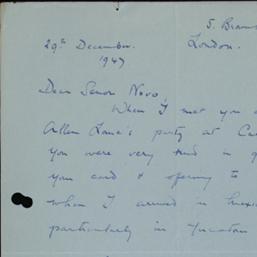 5. Bram
29th December. London.
1947
Dear Senor Novo,
When I met you a
Allen Lane's party at Ca
you were very kind in g
you card & offering to
when I arrived in Mexic
particularly in Yucatan